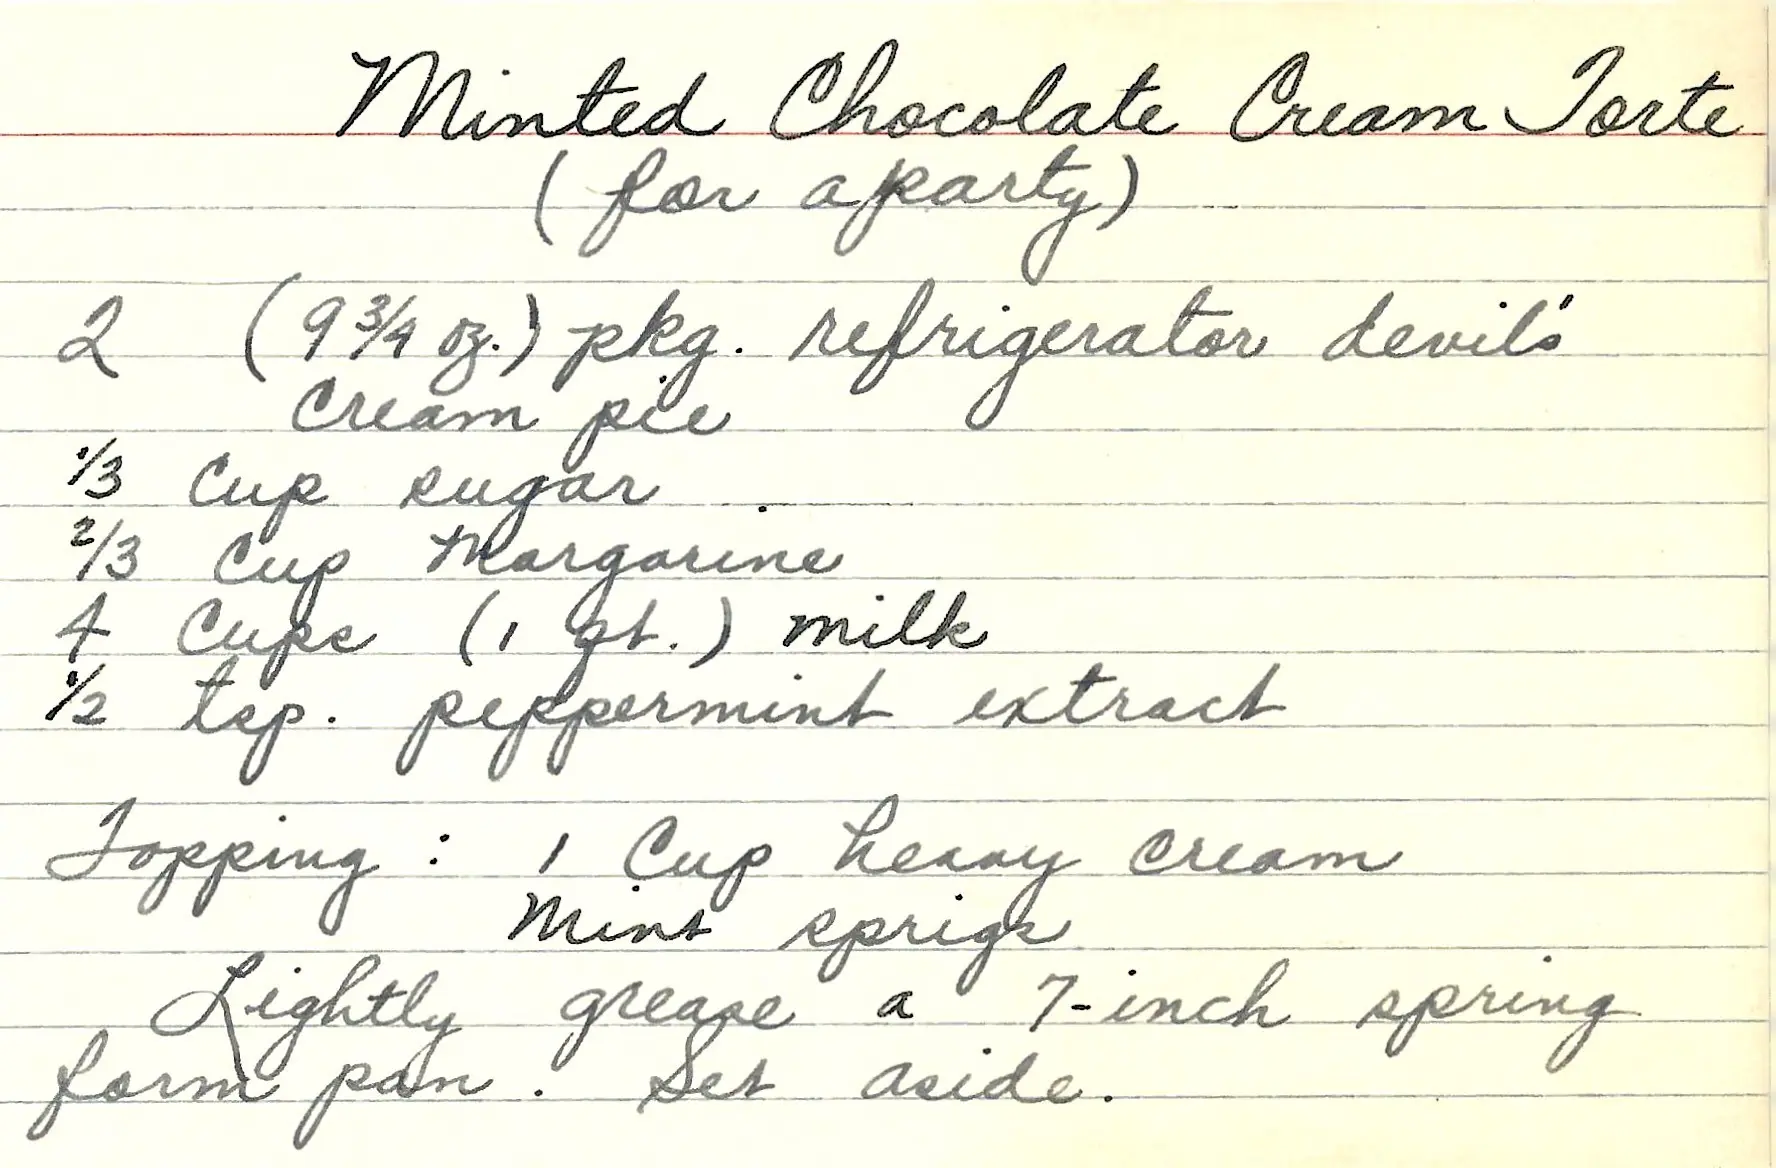 Minted Chocolate Cream Torte
(for a party)
2 (9 3/4 oz.) pkg. refrigerator devil's
cream pie
1/3 cup sugar
2/3 cup margarine
4 cups (1 qt.) milk
1/2 tsp. peppermint extract
Topping: 1 cup heavy cream
Mint sprigs
Lightly grease a 7-inch spring
form pan. Set aside.